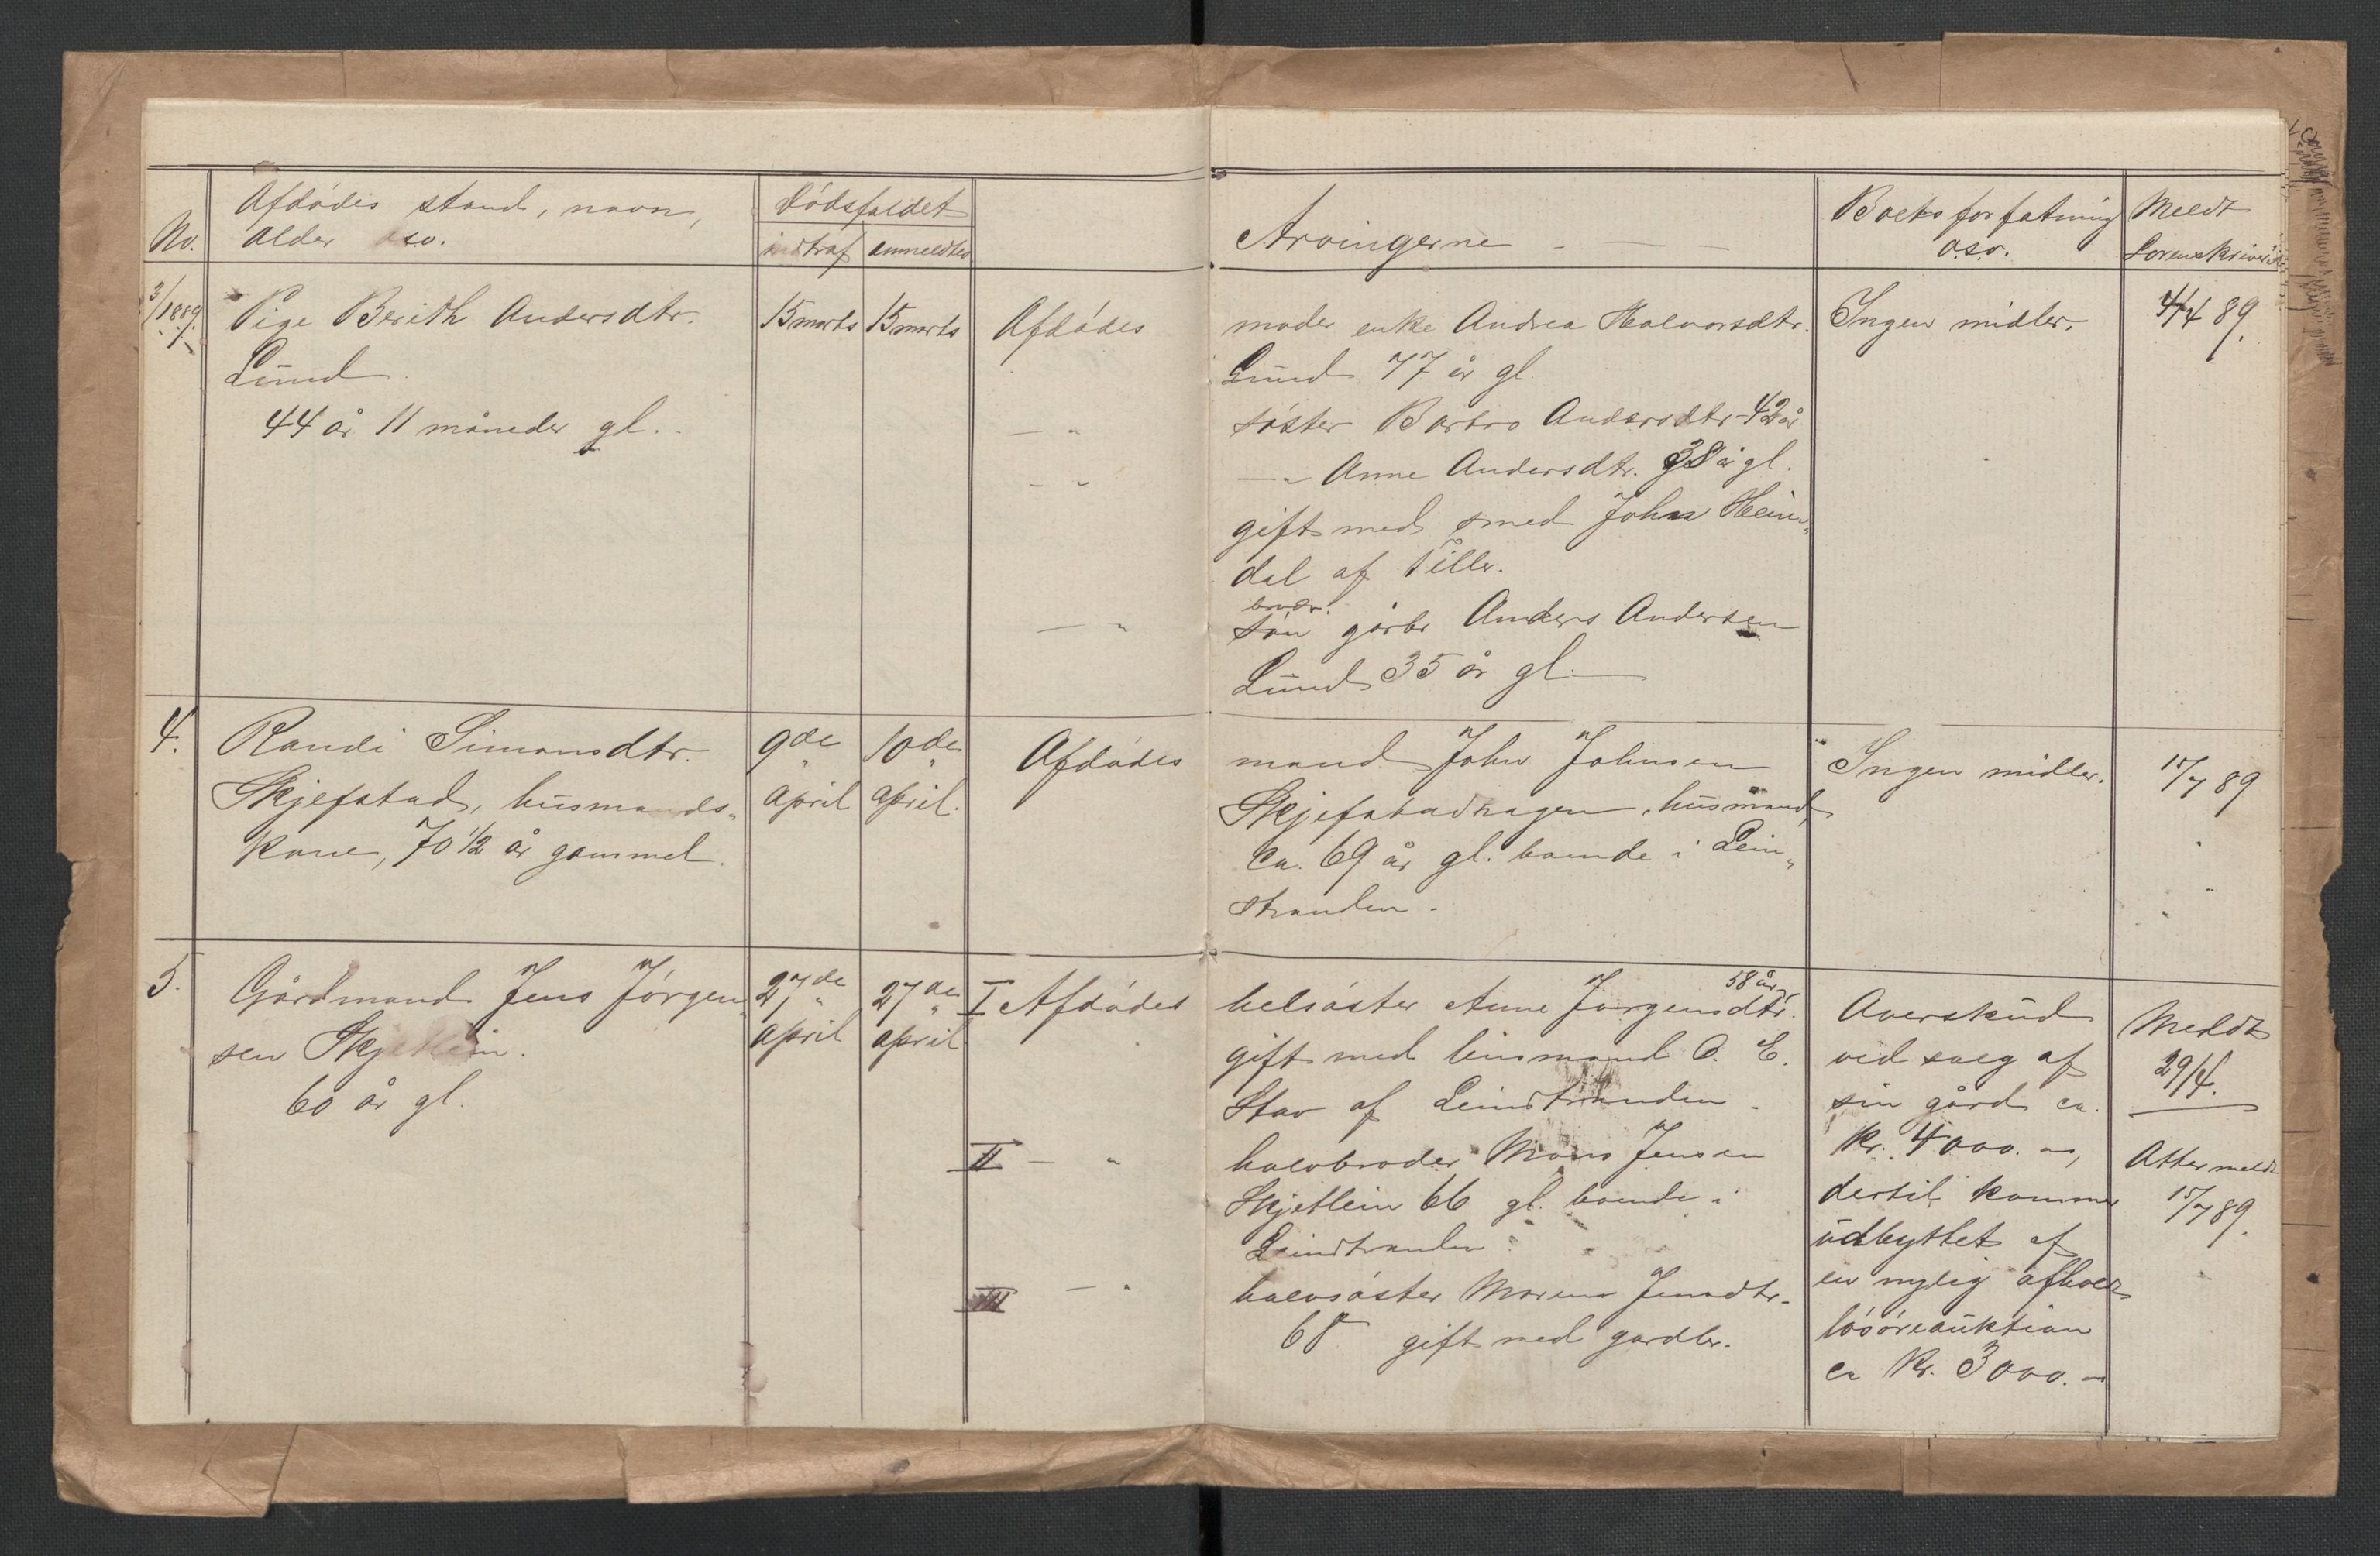 No.
Afdödes stand, navn,
alder o.s.v.
Dödsfaldet
indtraf anmeldtes
Arvingerne
Boets forfatning
o.s.v.
Meldt
Sorenskriveren
3/1889.
Pige Berith Andersdtr.
Lund
44 år 11 måneder gl.
15 marts
15 marts
Afdödes
moder enke Andrea Halvorsdtr.
Lund 77 år gl.
söster Barbro Andersdtr 42 år
— " Anne Andersdtr. 38 år gl.
gift med smed John Heim-
dal af Tiller.
broder
sön gårbr Anders Andersen
Lund 35 år gl.
Ingen midler.
4/4 89.
4.
Randi Simonsdtr.
Skjefstad, husmands-
kone, 70 1/2 år gammel.
9de
april
10de
april.
Afdödes
mand John Johnsen
Skjefstadhagen, husmand,
ca. 69 år gl. boende i Lein-
stranden.
Ingen midler.
15/7 89
5.
Gårdmand Jens Jörgen-
sen Skjetlein.
60 år gl.
27de
april
27de
april
I Afdödes
helsöster Anne Jørgensdtr. 58 år
gift med lensmand O. E.
Stav af Leinstranden.
II — "
halvbroder Mons Jensen
Skjetlein 66 gl. boende i
Leinstranden.
III — "
halvsöster Maren Jensdtr.
68 gift med gardbr.
Overskud
ved salg af
sin gård ca.
Kr. 4000. -,
dertil kommer
udbyttet af
en nylig afholdt
lösöreauktion
ca Kr. 3000. -
Meldt
29/4.
Atter meldt
15/7 89.